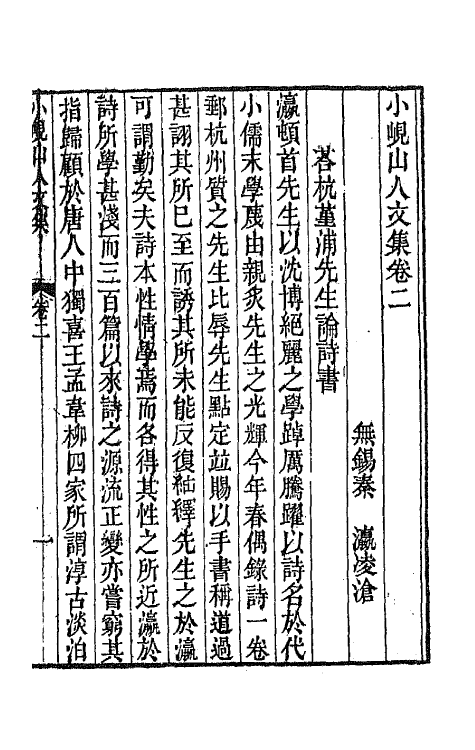 小峴山人文集卷二
無錫秦　瀛凌滄
荅杭堇浦先生論詩書
瀛頓首先生以沈博絕麗之學踔厲騰躍以詩名於代
小儒末學蔑由親炙先生之光輝今年春偶錄詩一卷
郵杭州質之先生比辱先生點定並賜以手書稱道過
甚詡其所已至而誘其所未能反復紬繹先生之於瀛
可謂勤矣夫詩本性情學焉而各得其性之所近瀛於
詩所學甚淺而三百篇以來詩之源流正變亦嘗窮其
指歸顧於唐人中獨喜王孟韋柳四家所謂淳古淡泊
小峴山人文集
卷二
一